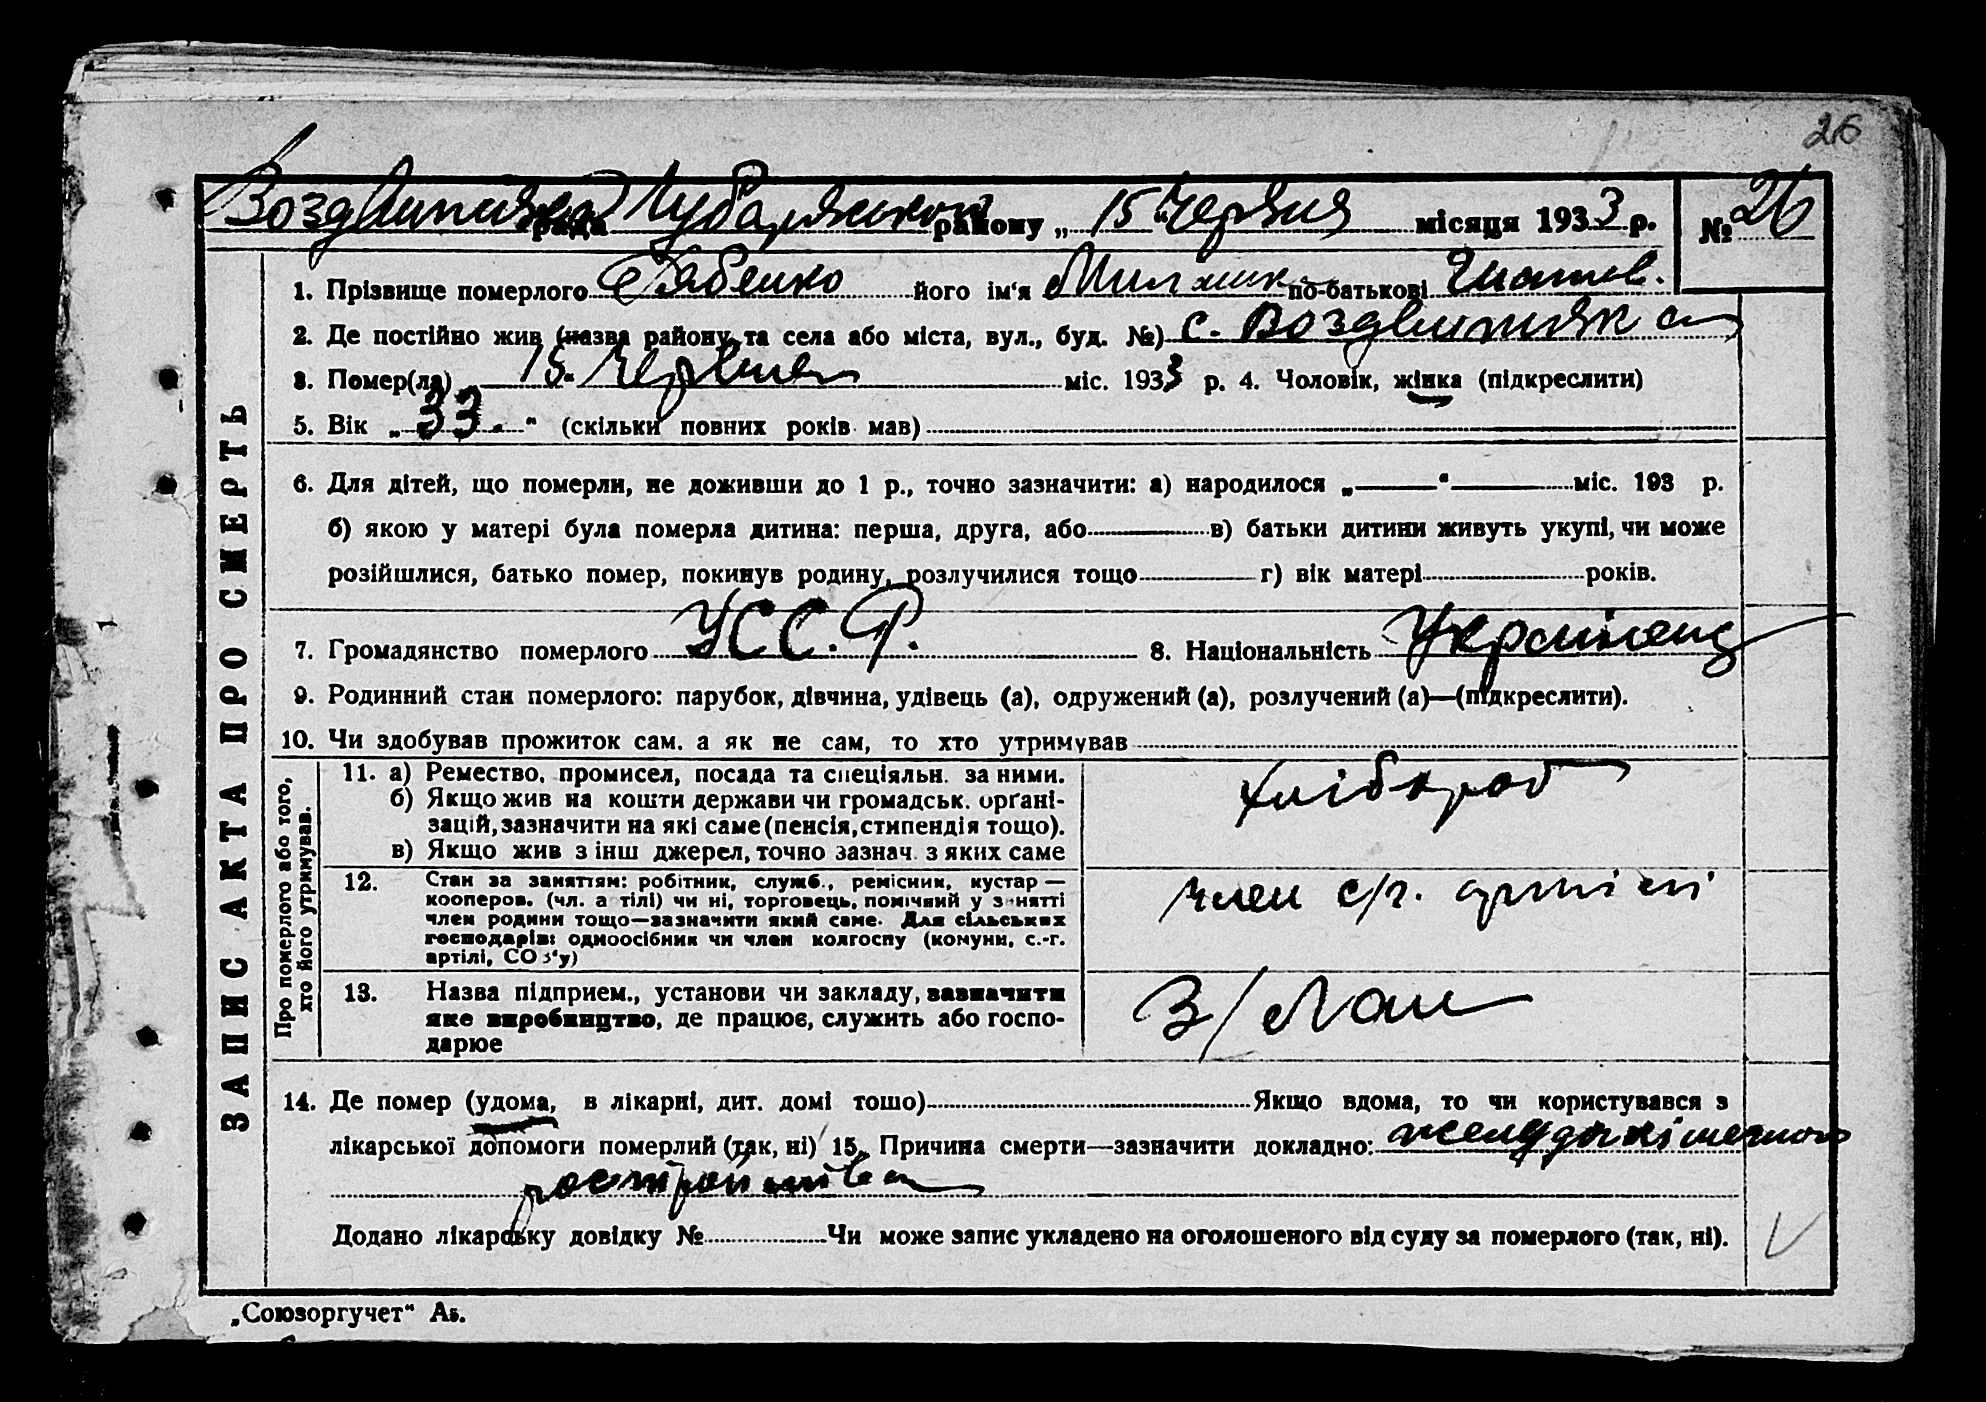 26
Воздвижівська рада Чубарівського району „ 15 " Червня місяця 1933 р. № 26
1. Прізвище померлого Рябенко його ім'я по-батькові Гнатов.
2. Де постійно жив (назва району та села або міста, вул., буд. №) с. Воздвижівка
3. Помер(ла) 15 Червня міс. 1933 р. 4. Чоловік, жінка (підкреслити)
5. Вік „ 33. " (скільки повних років мав)
6. Для дітей, що померли, не доживши до 1 р., точно зазначити: а) народилося „ " міс. 193 р.
б) якою у матері була померла дитина: перша, друга, або в) батьки дитини живуть укупі, чи може
розійшлися, батько помер, покинув родину, розлучилися тощо г) вік матері років.
7. Громадянство померлого УССР. 8. Національність Українець
9. Родинний стан померлого: парубок, дівчина, удівець (а), одружений (а), розлучений (а)—(підкреслити).
10. Чи здобував прожиток сам. а як не сам, то хто утримував
ЗАПИС АКТА ПРО СМЕРТЬ
Про померлого або того,
хто його утримував.
11. а) Ремество, промисел, посада та спеціяльн. за ними.
б) Якщо жив на кошти держави чи громадськ. орґані-
зацій, зазначити на які саме (пенсія, стипендія тощо).
в) Якщо жив з інш джерел, точно зазнач. з яких саме
хлібороб
12. Стан за заняттям: робітник, служб., ремісник, кустар —
кооперов. (чл. а тілі) чи ні, торговець, помічний у занятті
член родини тощо—зазначити який саме. Для сільських
господарів: одноосібник чи член колгоспу (комуни, с.-г.
артілі, СОЗ'у)
член с/г. артілі
13. Назва підприєм., установи чи закладу, зазначити
яке виробництво, де працює, служить або госпо-
дарює
З/Лан
14. Де помер (удома, в лікарні, дит. домі тошо) Якщо вдома, то чи користувався з
лікарської допомоги померлий (так, ні) 15. Причина смерти—зазначити докладно: желудокішечного
ростройства
Додано лікарську довідку № Чи може запис укладено на оголошеного від суду за померлого (так, ні).
„Союзоргучет" Ав.